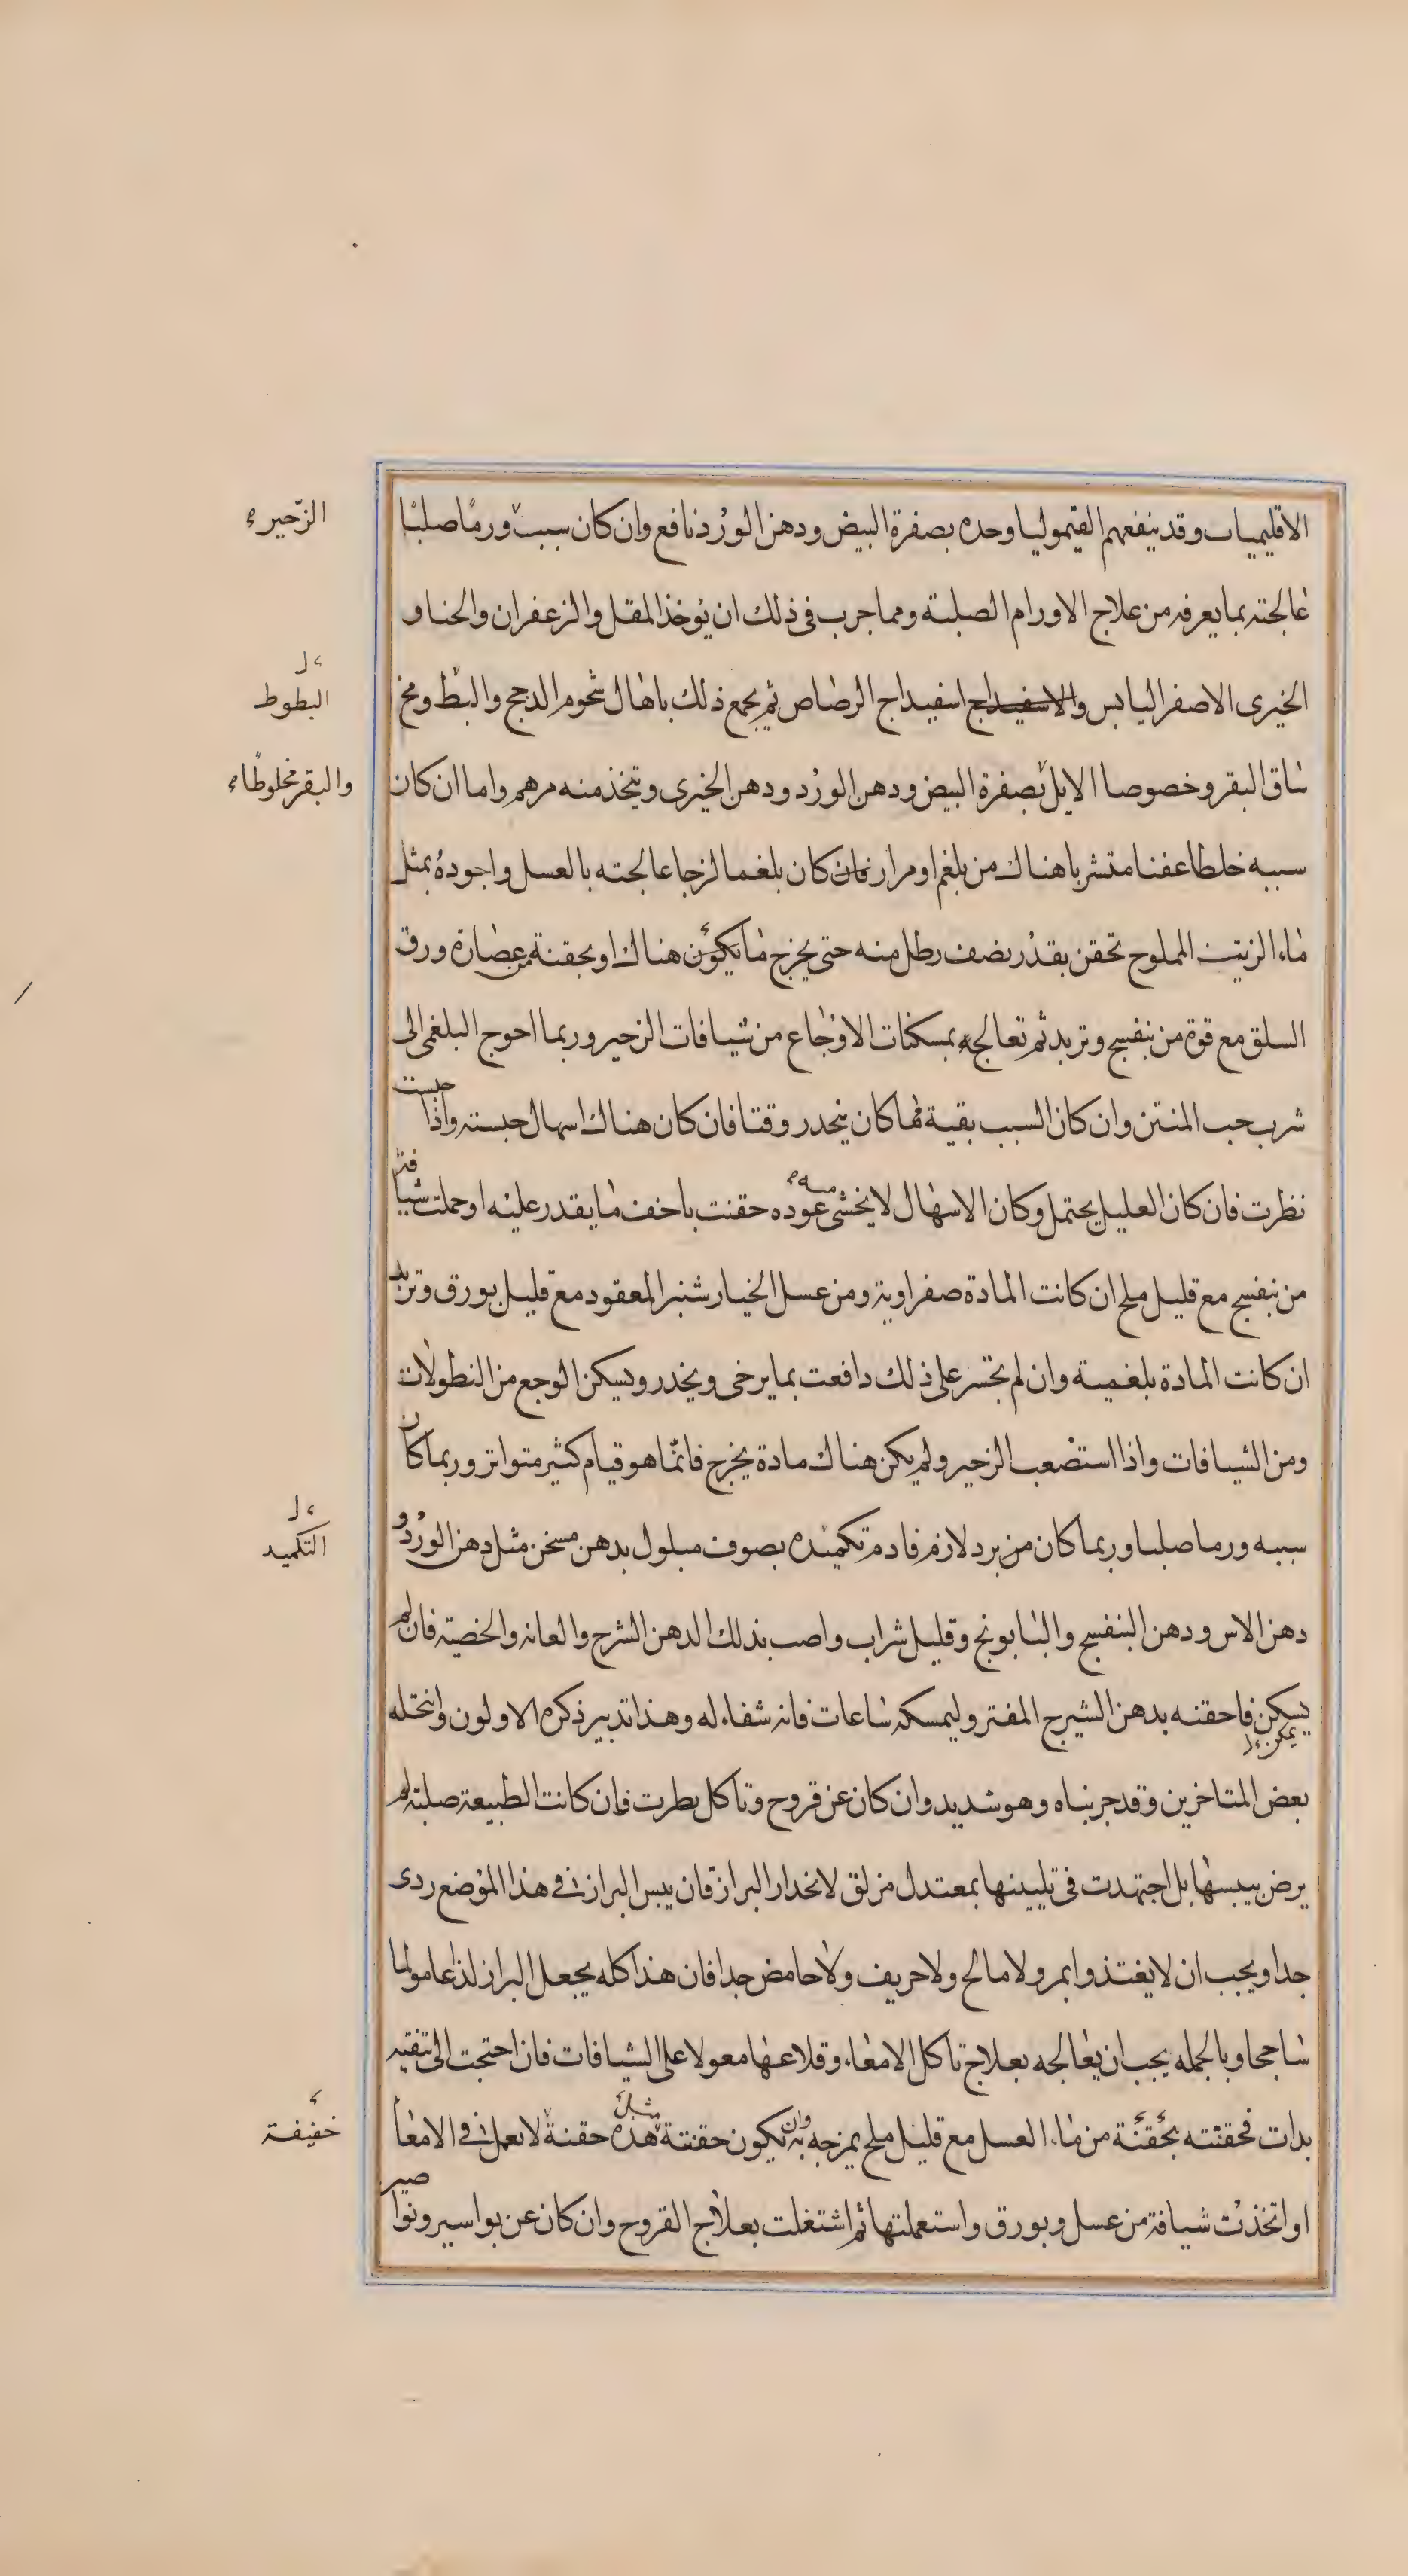 الاقليميات وقد ينفعهم القيموليا وحده بصفرة البيض ودهن الورد نافع وان كان سببه ورما صلبا
الزحير
عالجته بما يعرفه من علاج الاورام الصلبة ومما جرب في ذلك ان يوخذ المقل والزعفران والحنا و
الخيرى الاصفر اليابس والاسفيداج اسفيداج الرصاص ثم يجمع ذلك باهال شحوم الدجج والبط ومخ
البطوط
ساق البقر وخصوصا الايل بصفرة البيض ودهن الورد ودهن الخيرى وتتخذ منه مرهم واما ان كان
والبقر مخلوطا
سببه خلطا عفنا متشربا هناك من بلغم او مرار فان كان بلغما لزجا عالجته بالعسل واجوده بمثل
ماء الزيتون المملوح تحقن بقدر نصف رطل منه حتى يخرج ما يكون هناك او بحقنة من عصارة ورق
السلق مع قوة من بنفسج وتربد ثم تعالجه بمسكنات الاوجاع من شيافات الزحير وربما احوج البلغمى الى
شرب حب المنتن وان كان السبب بقية مما كان ينحدر وقتا فان كان هناك اسهال حبسته واذا حبست
نظرت فان كان العليل يحتمل وكان الاسهال لا يخشى عوده حقنت باخف ما يقدر عليه او حملت شيافة
من بنفسج مع قليل ملح ان كانت المادة صفراوية ومن عسل الخيارشنبر المعقود مع قليل بورق وتربد
ان كانت المادة بلغمية وان لم تجسر على ذلك دافعت بما يرخى ويخدر ويسكن الوجع من النطولات
ومن الشيافات واذا استصعب الزحير ولم يكن هناك مادة يخرج فانما هو قيام كثير متواتر وربما كان
سببه ورما صلبا وربما كان من برد لازم فادم تكميده بصوف مبلول بدهن مسخن مثل دهن الورد و
التكميد
دهن الاس ودهن البنفسج والبابونج وقليل شراب واصب بذلك الدهن الشرج والعانه والخصية فان لم
يسكن فاحقنه بدهن الشيرج المفتر وليمسكه ساعات فانه شفاء له وهذا تدبير ذكره الاولون وانتحله
يمكن
بعض المتاخرين وقد جربناه وهو شديد وان كان عن قروح وتاكل نظرت فان كانت الطبيعة صلبة لم
يرض بيبسها بل اجتهدت في تليينها بمعتدل مزلق لانحدار البراز فان يبس البراز في هذا الموضع ردى
جدا ويجب ان لا يغتذوا بمر ولا مالح ولا حريف ولا حامض جدا فان هذا كله يجعل البراز لذاعا مولما
ساحجا وبالجمله يجب ان يعالجه بعلاج تاكل الامعاء وقلاعها معولا على الشيافات فان احتجت الى تنقيه
بدات فحقنته بحقنة من ماء العسل مع قليل ملح يمزجه به وان يكون حقنتة مثل هذه حقنة لا تعمل في الامعا
خفيفة
او اتخذت شيافة من عسل وبورق واستعملتها ثم اشتغلت بعلاج القروح وان كان عن بواسير ونواصير